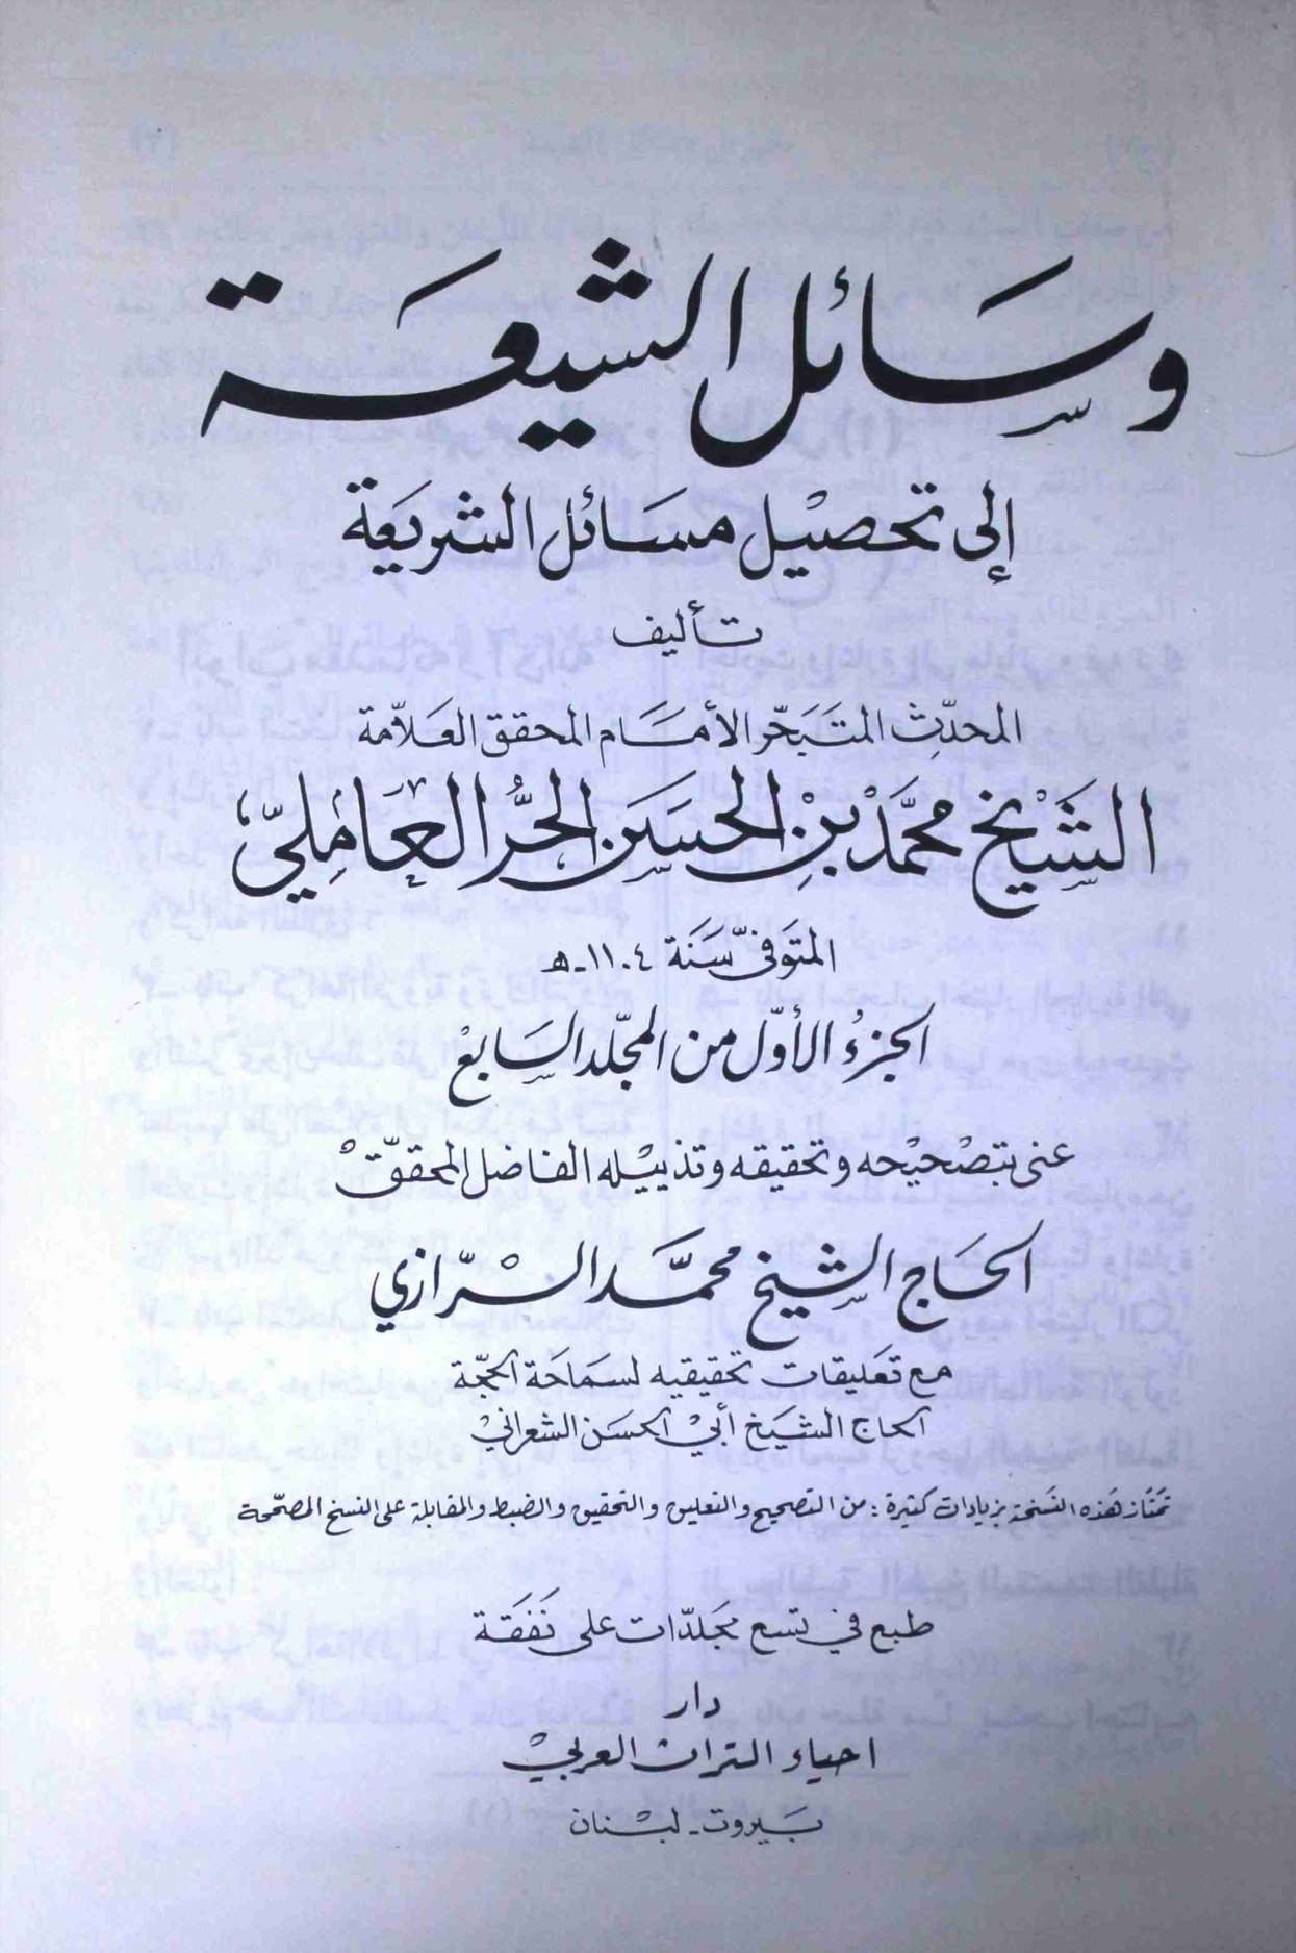 وسائل الشيعة
إلى تحصيل مسائل الشريعة
تأليف
المحدّث المتبحّر الأمام المحقق العلاّمة
الشَيْخ محمَّد بْنِ الحسَن الحُرّ العَامِليّ،
المتوَفىّ سَنَة ١١٠٤ـ هـ
الجزءُ الأوّل من المجلّد السَابع
عنى بتصْحيْحه وتحقيقه وتذييْله الفاضل المحققّ
الحَاج الشيخ محمَّد الرّازي
مع تعَليقات تحقيقيه لسَماحَة الحجّة
الحاج الشيَخ أبيْ الحسَن الشعرانيْ
تمتَاز هٰذه النسَخة بزيادات كثيرة : من التصحيح والتعليق والتحقيق والضبط والمقابلة على النسخ المصحّحة
طبع في تسع مجلدّات على نَفَقَة
دار
احياء التراث العربيْ
بَيروت - لبْنان